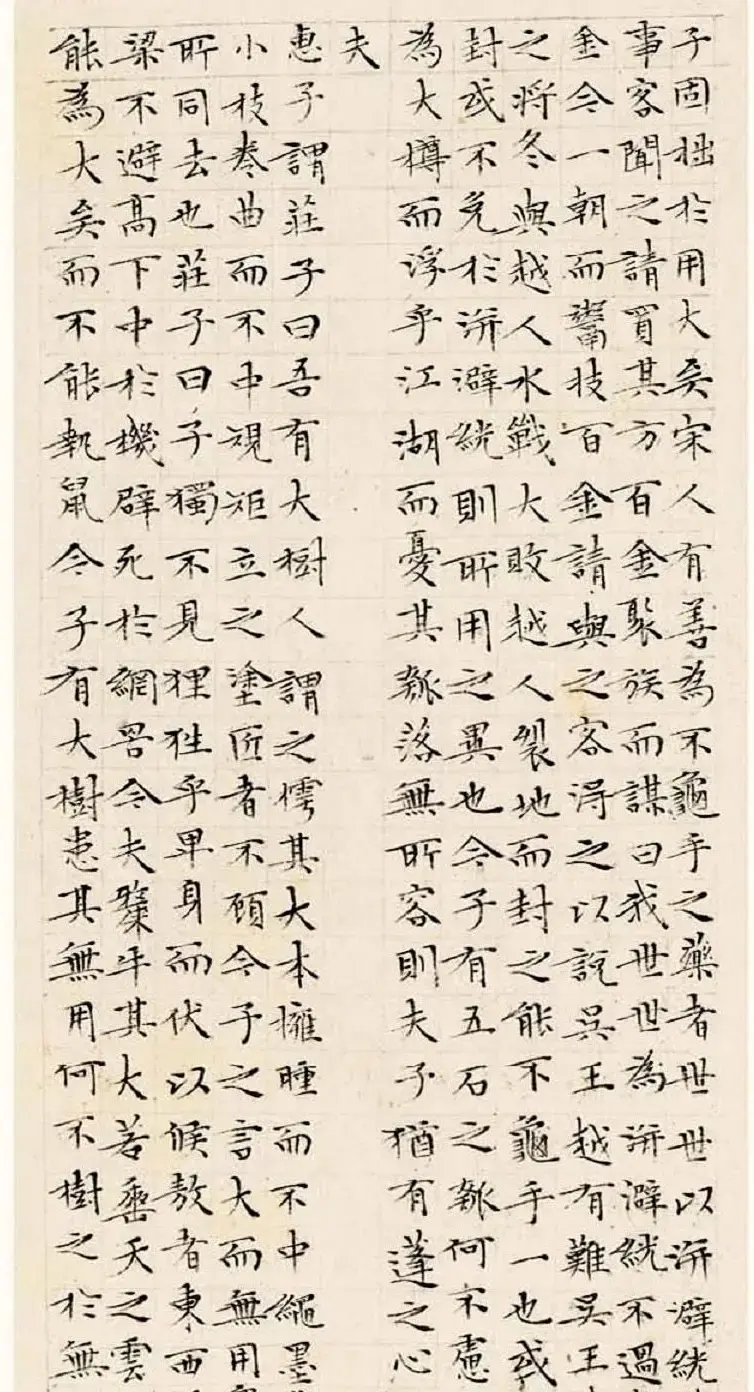 子固拙於用大矣宋人有善為不龜手之藥者世世以洴澼絖
事客聞之請買其方百金聚族而謀曰我世世為洴澼絖不過
金今一朝而鬻技百金請與之客得之以說吳王越有難吳王
之將冬與越人水戰大敗越人裂地而封之能不龜手一也或
封或不免於洴澼絖則所用之異也今子有五石之瓠何不慮
為大樽而浮乎江湖而憂其瓠落無所容則夫子猶有蓬之心
夫
惠子謂莊子曰吾有大樹人謂之樗其大本擁腫而不中繩墨
小枝卷曲而不中規矩立之塗匠者不顧今子之言大而無用
所同去也莊子曰子獨不見狸狌乎卑身而伏以候敖者東西
梁不避高下中於機辟死於網罟今夫斄牛其大若垂天之雲
能為大矣而不能執鼠今子有大樹患其無用何不樹之於無